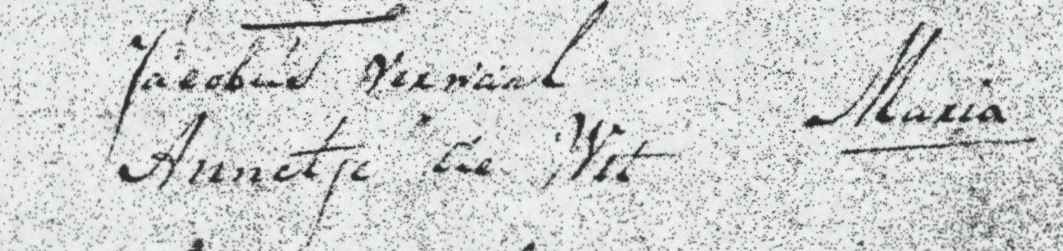 Jacobus Vernaal
Annetje de Wit
Maria